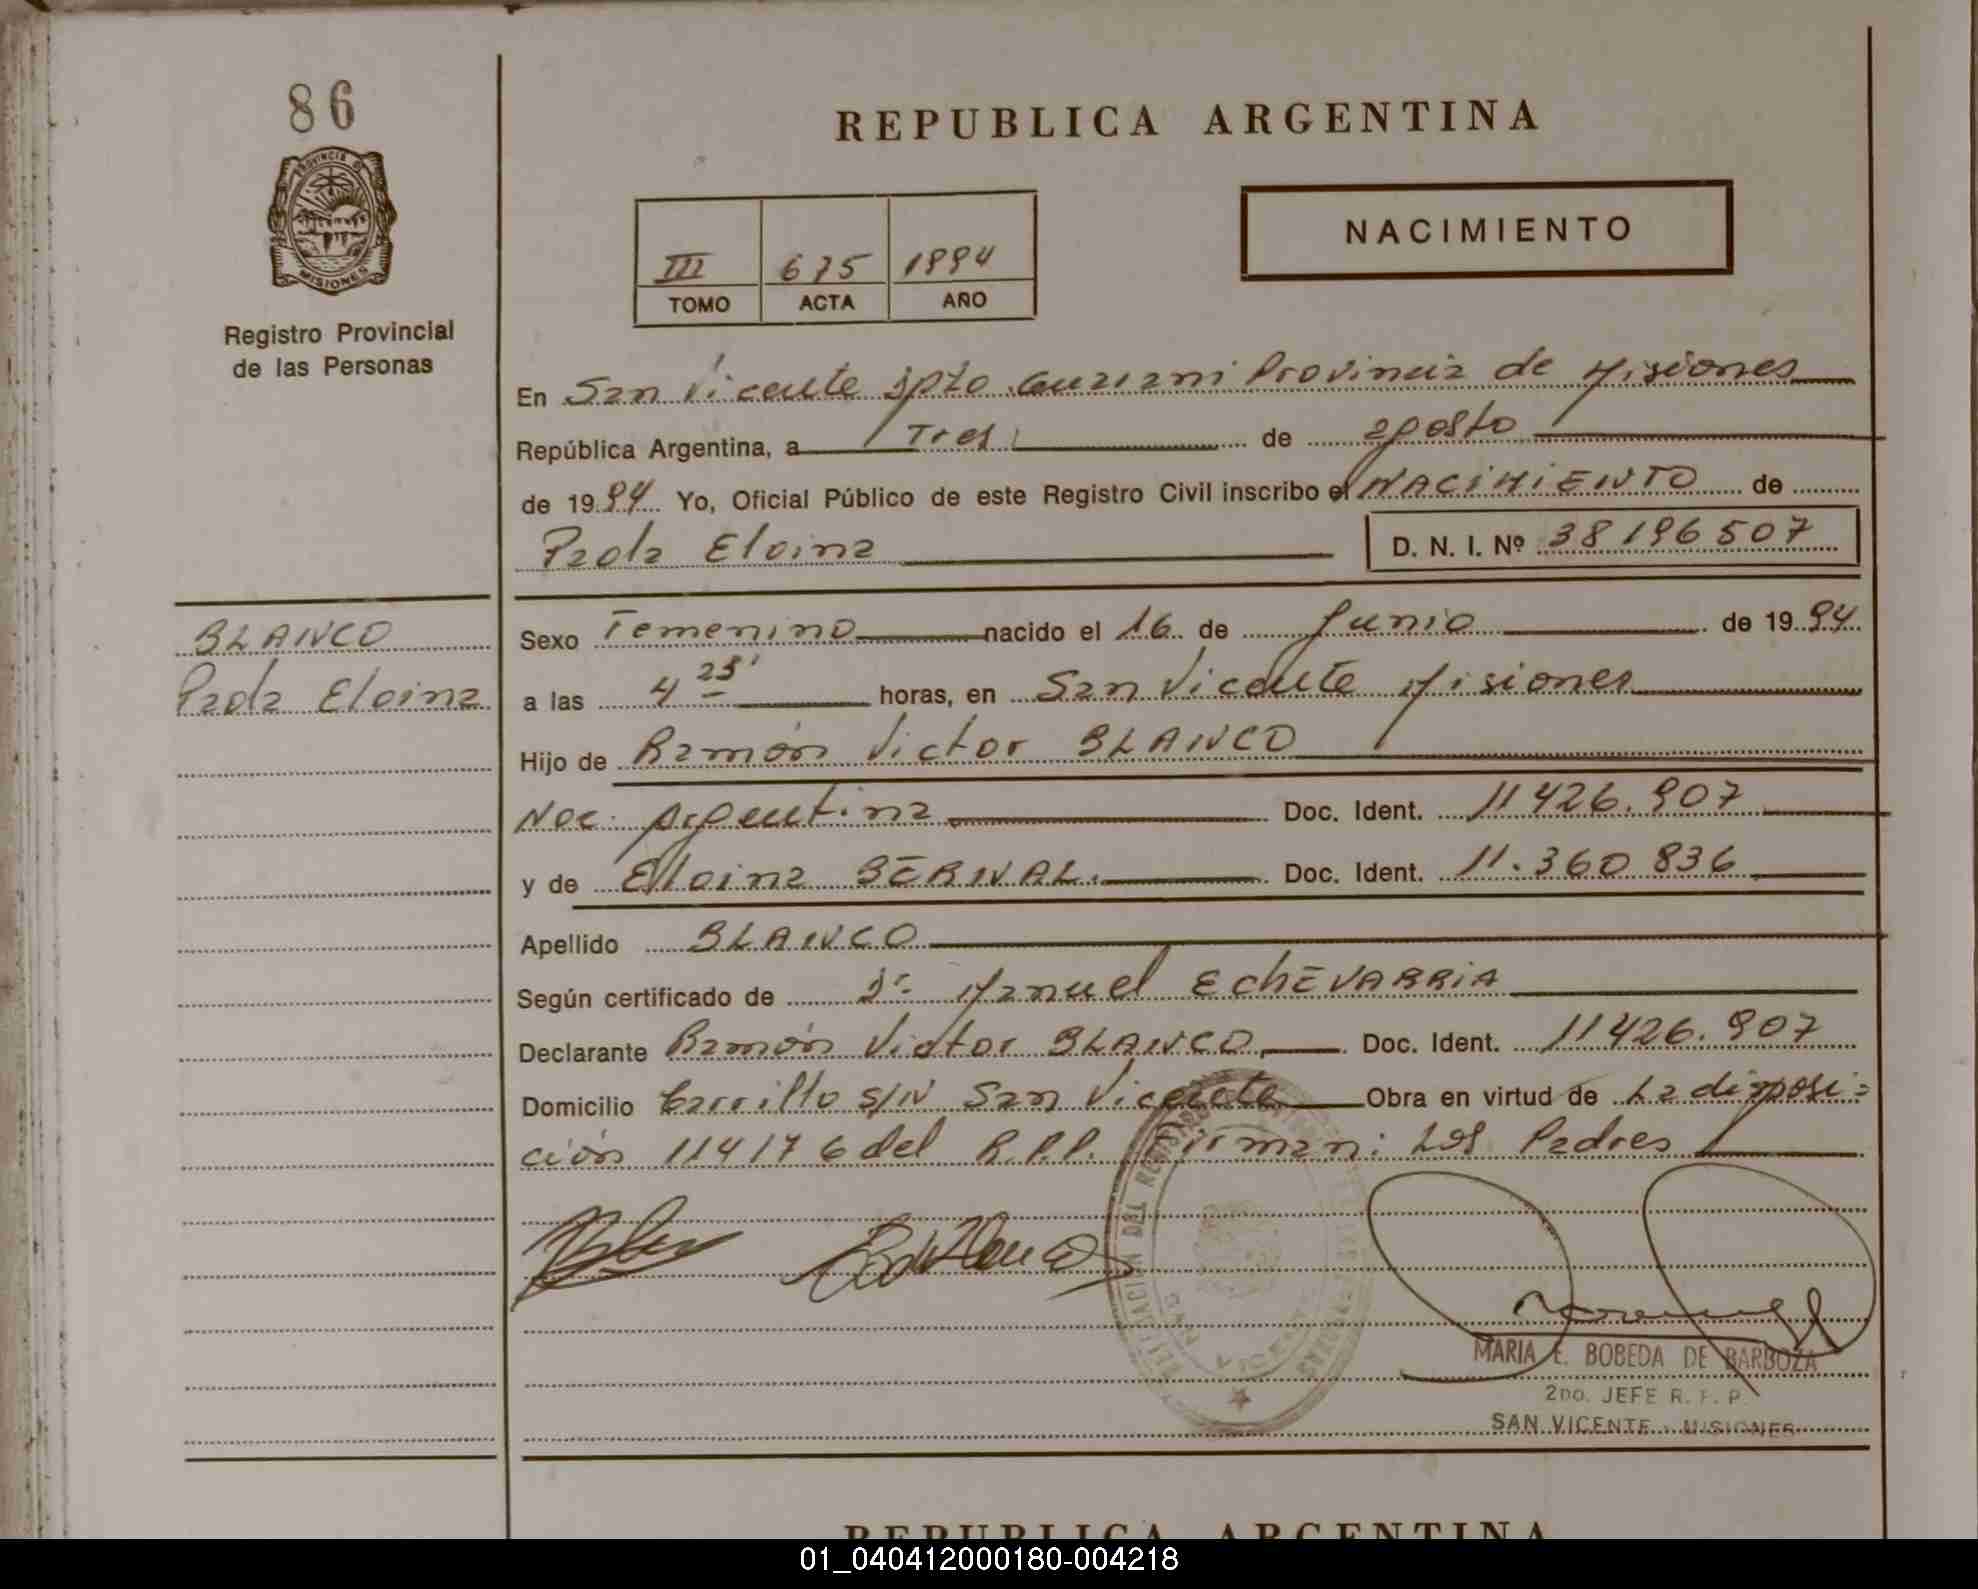 86
PROVINCIA DE
MISIONES
Registro Provincial
de las Personas
REPUBLICA ARGENTINA
NACIMIENTO
III 675 1994
TOMO ACTA AÑO
En San Vicente Dpto Guarani Provincia de Misiones
República Argentina, a Tres de agosto
de 1994 Yo, Oficial Público de este Registro Civil inscribo el NACIMIENTO de
Paola Eloina D. N. I. Nº 38196507
BLANCO
Paola Eloina
Sexo Femenino nacido el 16 de Junio de 1994
a las 4 25' horas, en San Vicente Misiones
Hijo de Ramón Victor BLANCO
Nac. Argentina Doc. Ident. 11426.907
y de Eloina BERNAL. Doc. Ident. 11.360 836
Apellido BLANCO
Según certificado de Dr. Manuel EchEVARRIA
Declarante Ramón Victor BLANCO Doc. Ident. 11426.907
Domicilio Carrillo S/N San Vicente Obra en virtud de La disposi=
ción 114176 del R.P.P. Firman: Los Padres
MARIA E. BOBEDA DE BARBOZA
2DO. JEFE R. P. P.
SAN VICENTE - MISIONES
REPUBLICA ARGENTINA
01_040412000180-004218